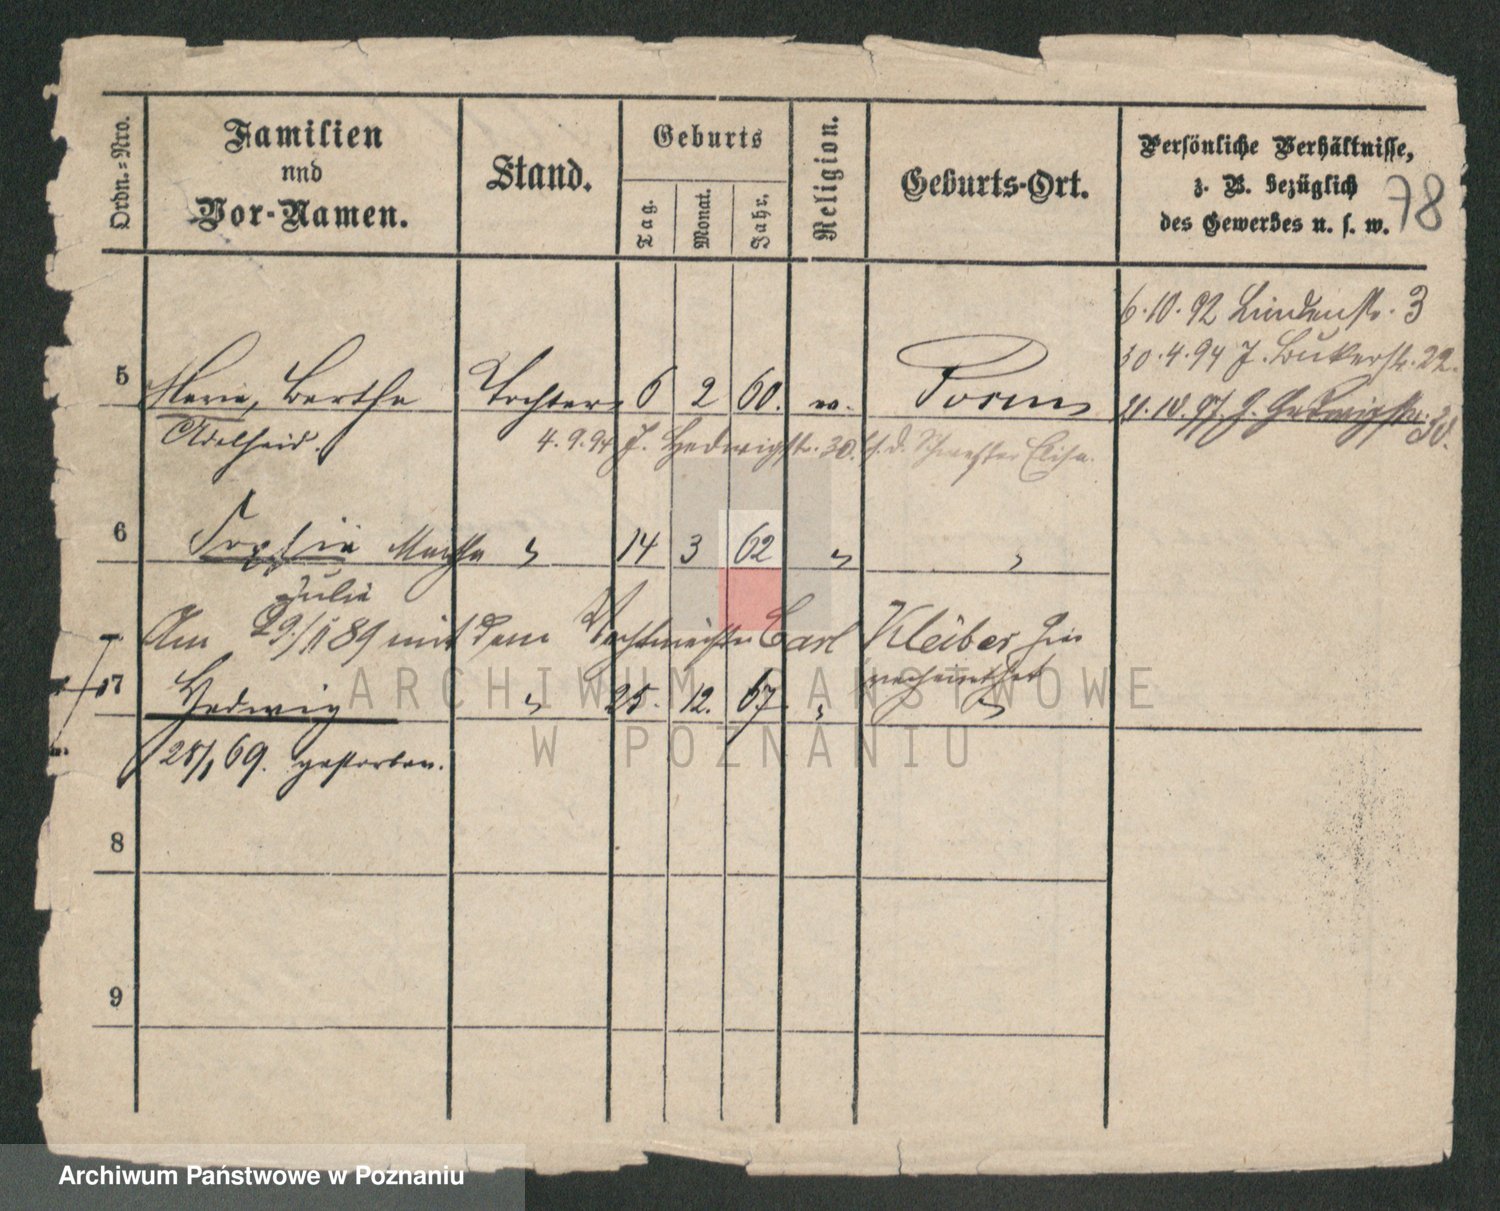 Ordn.-Nro.
Familien
und
Vor-Namen.
Stand.
Geburts
Tag.
Monat.
Jahr.
Religion.
Geburts-Ort.
Persönliche Verhältnisse,
z. B. bezüglich
des Gewerbes u. s. w.
78
6.10.92 Lindenstr. 3
30.4.94 J. Bukerstr. 22.
5 Marie, Bertha Tochter 6 2 60. ev. Posen 21.10.97. J. Hedwigstr. 30.
Adelheid. 4.9.94 J. Hedwigstr. 30. b. d. Schwester Elise.
6 Sophie Martha " 14 3 62 " "
Julie
Am 29/1 89 mit dem Wachtmeister Carl Kleiber hier
verheirathet
7 Hedwig " 25. 12. 67. " "
28/1 69. gestorben.
8
9
ARCHIWUM PAŃSTWOWE
W POZNANIU
Archiwum Państwowe w Poznaniu